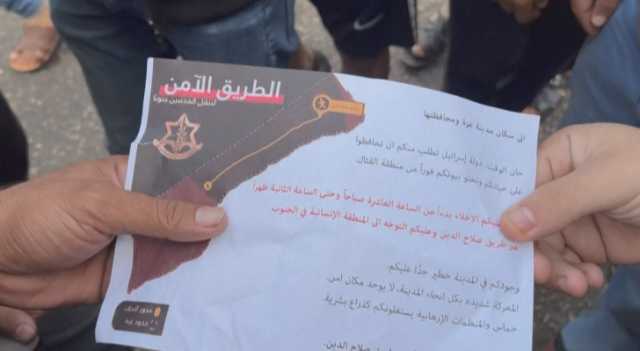 الطريق الآمن
لتنقل المدنيين جنوبا
الى سكان مدينة غزة ومحافظتها
حان الوقت، دولة إسرائيل تطلب منكم ان تحافظوا
على حياتكم وتخلو بيوتكم فوراً من منطقة القتال
الاخلاء بدءاً من الساعة العاشرة صباحاً وحتى الساعة الثانية ظهراً
طريق صلاح الدين وعليكم التوجه الى المنطقة الإنسانية في الجنوب
وجودكم في المدينة خطير جدًا عليكم.
المعركة شديدة بكل انحاء المدينة، لا يوجد مكان امن.
حماس والمنظمات الإرهابية يستغلونكم كدراع بشرية.
صلاح الدين.